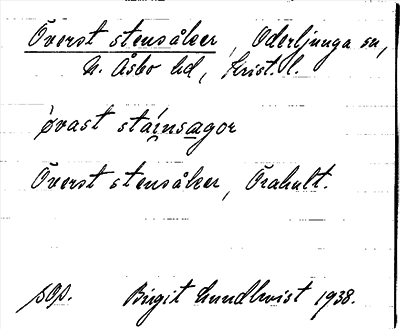 Överst stensåker, Oderljunga sn,
N. Åsbo hd, Krist. l.
øvast stáinsagor
Överst stensåker, Örahult.
sop. Birgit Lundkvist 1938.